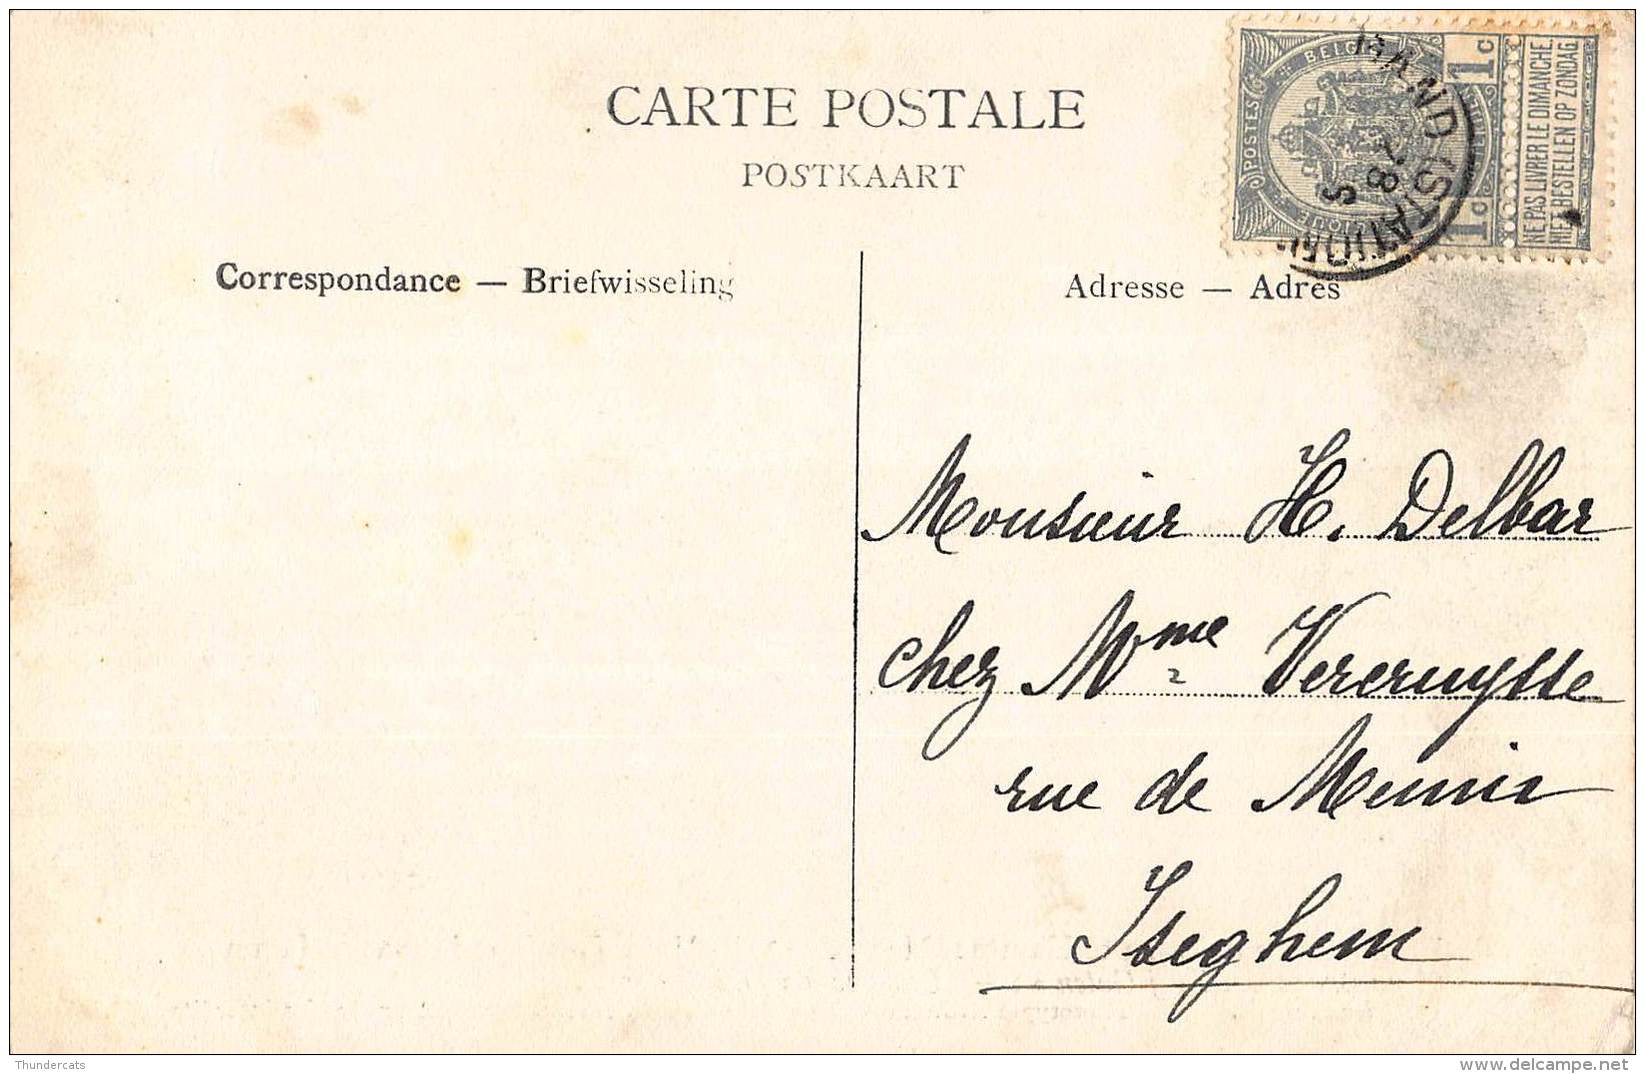 CARTE POSTALE
POSTKAART
Correspondance — Briefwisseling
Adresse — Adres
POSTES
BELGI
1c
1c
NE PAS LIVRER LE DIMANCHE.
NIET BESTELLEN OP ZONDAG
GAND (STATION
8
S
Monsieur H. Delbar
chez Mme Vercruysse
rue de Menin
Iseghem
Thundercats
delcampe.net